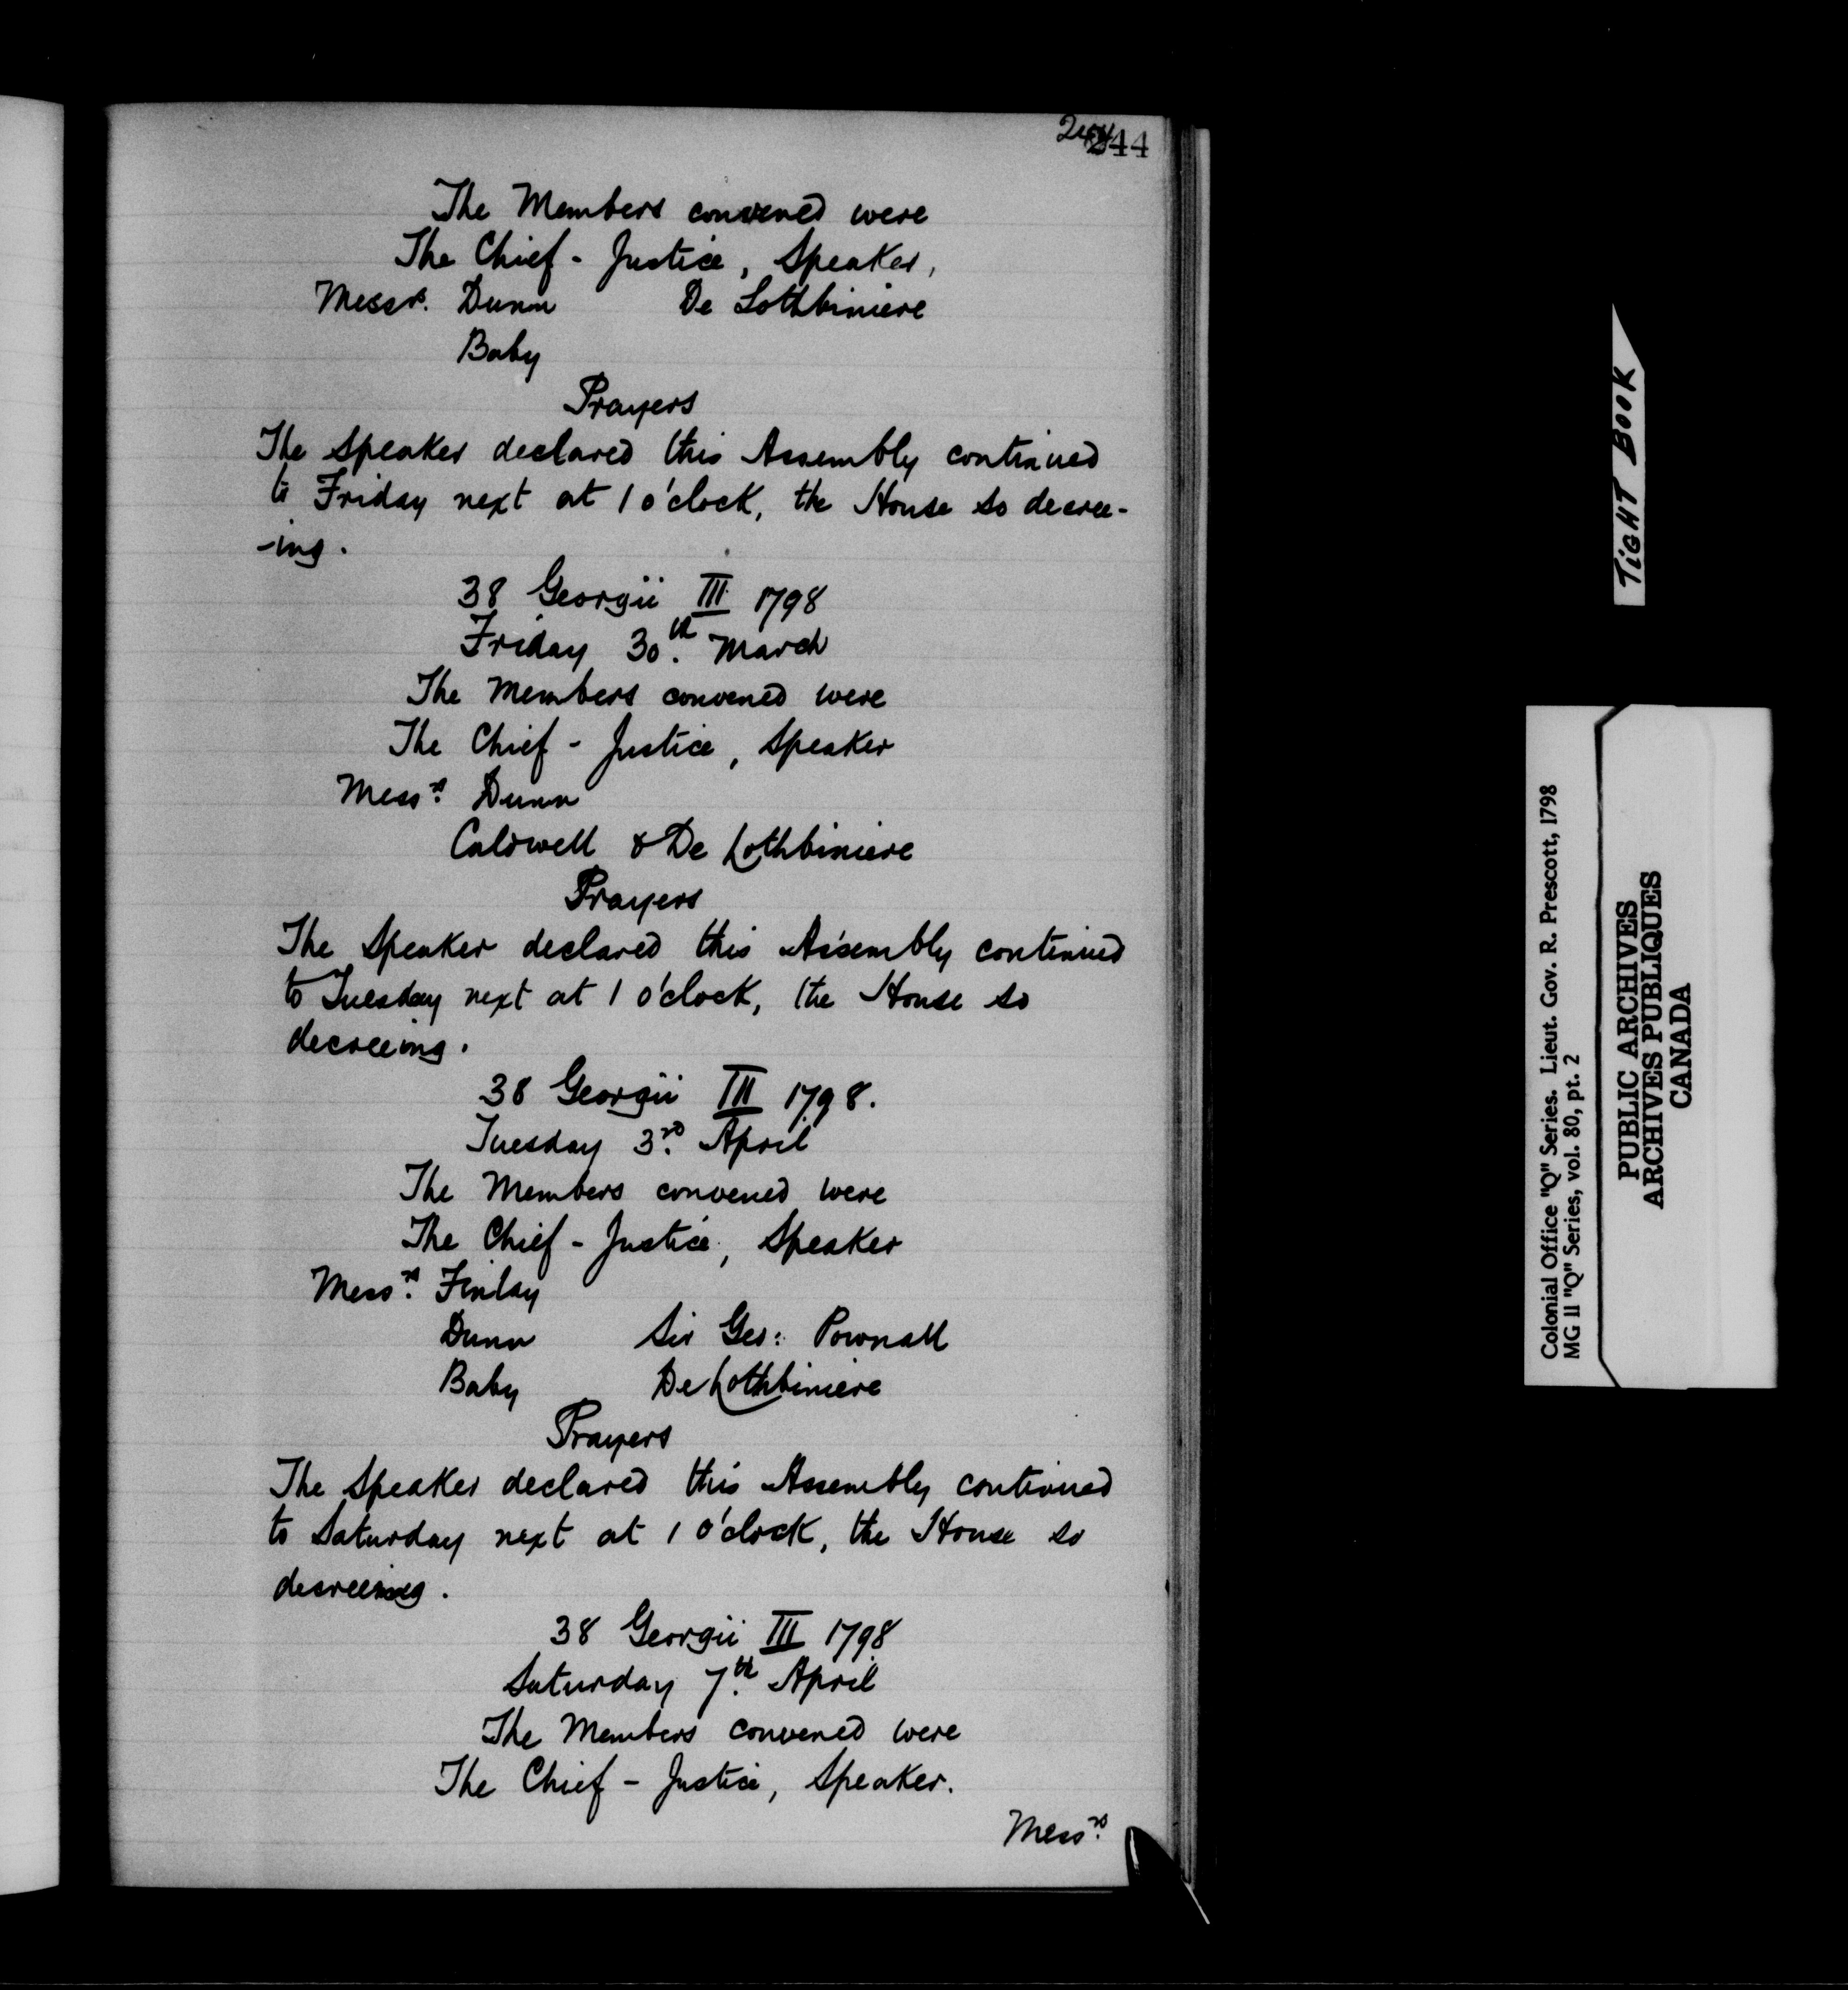 244
The Members convened were
The Chief - Justice, Speaker,
Messrs. Dunn De Lothbiniere
Baby
Prayers
The Speaker declared this Assembly continued
to Friday next at 1 o'clock, the House so decree-
-ing.
38 Georgii III 1798
Friday 30th. March
The Members convened were
The Chief - Justice, Speaker
Messrs. Dunn
Caldwell & De Lothbiniere
Prayers
The Speaker declared this Assembly continued
to Tuesday next at 1 o'clock, the House so
decreeing.
38 Georgii III 1798.
Tuesday 3rd. April
The Members convened were
The Chief - Justice, Speaker
Messrs. Finlay
Dunn Sir Geo: Pownall
Baby De Lothbiniere
Prayers
The Speaker declared this Assembly continued
to Saturday next at 1 o'clock, the House so
decreeing.
38 Georgii III 1798
Saturday 7th. April
The Members convened were
The Chief - Justice, Speaker.
Messrs.
TIGHT BOOK
Colonial Office "Q" Series. Lieut. Gov. R. Prescott, 1798
MG 11 "Q" Series, vol. 80, pt. 2
PUBLIC ARCHIVES
ARCHIVES PUBLIQUES
CANADA